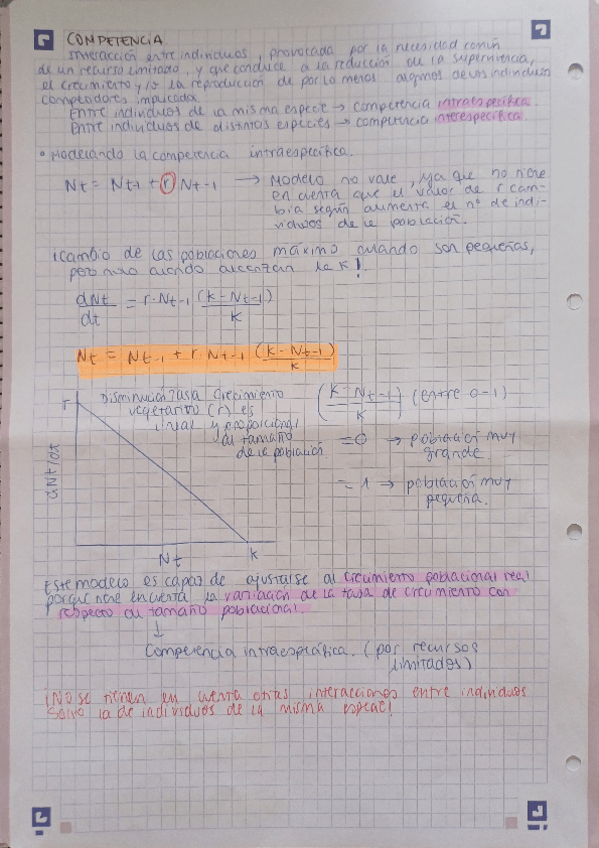 COMPETENCIA
Interacción entre individuos, provocada por la necesidad común
de un recurso limitado, y que conduce a la reducción de la supervivencia,
el crecimiento y/o la reproducción de por lo menos algunos de los individuos
competidores implicados
Entre individuos de la misma especie → competencia intraespecífica
Entre individuos de distintas especies → competencia interespecífica
• Modelando la competencia intraespecífica.
Nt = Nt-1 + r Nt-1 → Modelo no vale, ya que no tiene
en cuenta que el valor de r cam-
bia según aumenta el nº de indi-
viduos de la población.
¡cambio de las poblaciones máximo cuando son pequeñas,
pero nulo cuando alcanzan la K!
dNt/dt = r·Nt-1 (K-Nt-1)/K
Nt = Nt-1 + r·Nt-1 (K-Nt-1)/K
Disminución tasa crecimiento
vegetativo (r) es
lineal y proporcional
al tamaño
de la población
r
dNt/dt
Nt
K
(K-Nt-1/K) (entre 0-1)
=0 → población muy
grande.
=1 → población muy
pequeña.
Este modelo es capaz de ajustarse al crecimiento poblacional real
porque tiene en cuenta la variación de la tasa de crecimiento con
respecto al tamaño poblacional.
↓
Competencia intraespecífica. (por recursos
limitados)
¡No se tienen en cuenta otras interacciones entre individuos
salvo la de individuos de la misma especie!